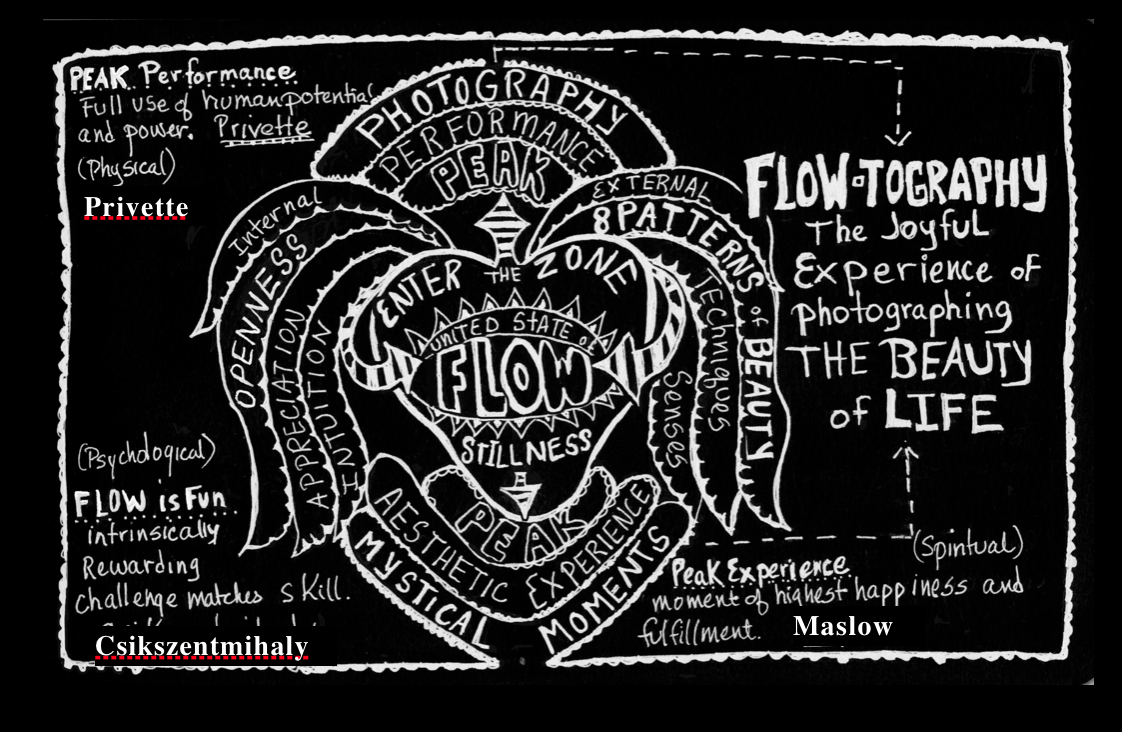 PEAK Performance
Full use of human potential
and power. Privette
(Physical)
Privette
PHOTOGRAPHY
PERFORMANCE
PEAK
Internal
OPENNESS
APPRECIATION
INTUITION
EXTERNAL
8 PATTERNS of BEAUTY
TECHNIQUES
Senses
ENTER THE ZONE
UNITED STATE of
FLOW
STILLNESS
PEAK
AESTHETIC EXPERIENCE
MYSTICAL MOMENTS
FLOW-TOGRAPHY
The Joyful
Experience of
photographing
THE BEAUTY
of LIFE
(Psychological)
FLOW is Fun
intrinsically
Rewarding
challenge matches skill.
Csikszentmihaly
(Spiritual)
Peak Experience
moment of highest happiness and
fulfillment.
Maslow